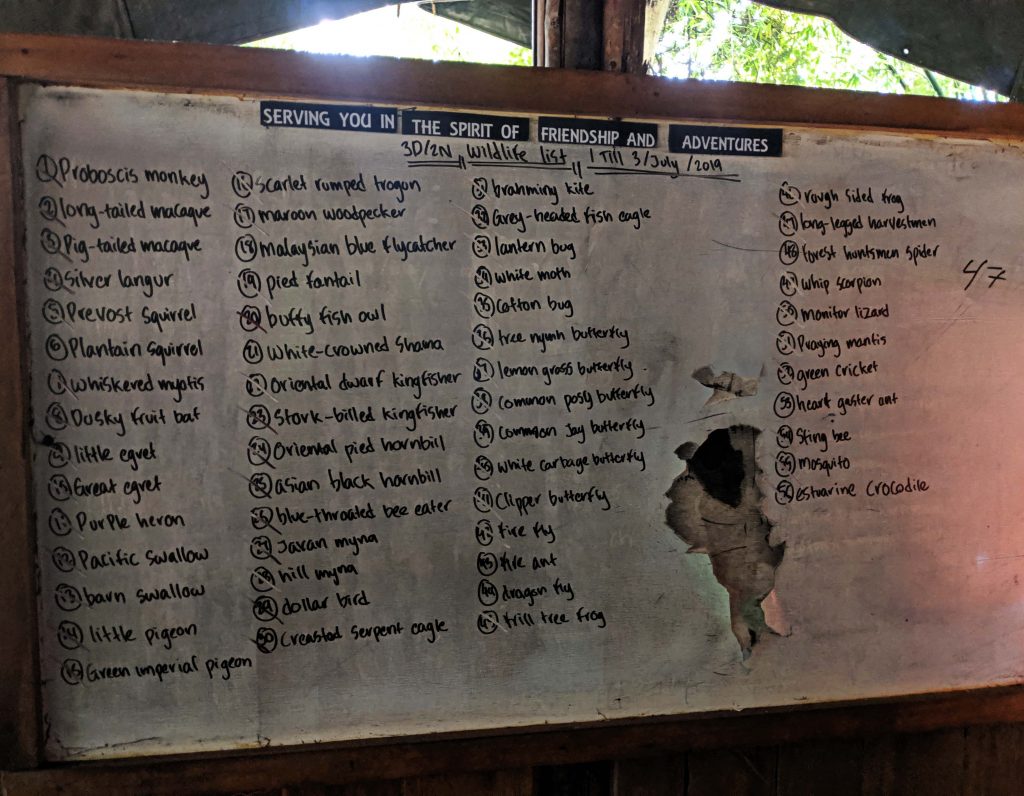 SERVING YOU IN THE SPIRIT OF FRIENDSHIP AND ADVENTURES
3D/2N wildlife list 1 Till 3/July/2019
1 Proboscis monkey
2 long-tailed macaque
3 Pig-tailed macaque
4 Silver langur
5 Prevost squirrel
6 Plantain squirrel
7 Whiskered myotis
8 Dusky fruit bat
9 little egret
10 Great egret
11 Purple heron
12 Pacific swallow
13 barn swallow
14 little pigeon
15 Green imperial pigeon
16 scarlet rumped trogon
17 maroon woodpecker
18 Malaysian blue flycatcher
19 pied fantail
20 buffy fish owl
21 White-crowned Shama
22 Oriental dwarf kingfisher
23 Stork-billed kingfisher
24 Oriental pied hornbill
25 asian black hornbill
26 blue-throated bee eater
27 Javan myna
28 hill myna
29 dollar bird
30 Creasted serpent eagle
31 brahming kite
32 Grey-headed fish eagle
33 lantern bug
34 white moth
35 Cotton bug
36 tree nymh butterfly
37 lemon grass butterfly
38 common posy butterfly
39 Common Jay butterfly
40 white carbage butterfly
41 Clipper butterfly
42 fire fly
43 fire ant
44 dragon fly
45 frill tree frog
46 rough sided frog
47 long-legged harvestmen
48 forest huntsmen spider
49 whip scorpion
50 monitor lizard
51 Praying mantis
52 green cricket
53 heart gaster ant
54 Sting bee
55 mosquito
56 estuarine crocodile
47